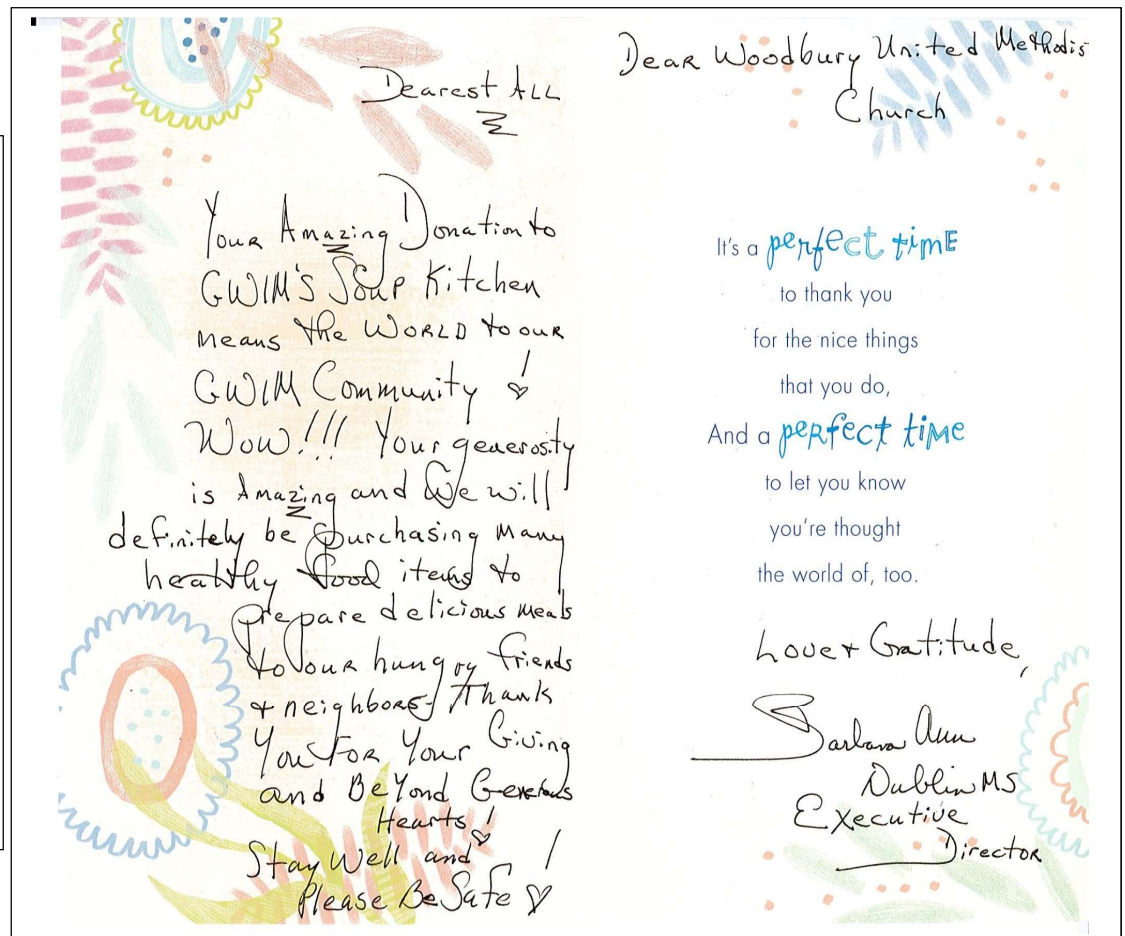 Dearest ALL
Your Amazing Donation to
GWIM'S Soup Kitchen
means the WORLD to our
GWIM Community !
Wow!!! Your generosity
is Amazing and We will
definitely be purchasing many
healthy food items to
prepare delicious meals
to our hungry friends
+ neighbors! Thank
You For Your Giving
and BeYond Generous
Hearts!
Stay Well and
Please Be Safe !
Dear Woodbury United Methodis
Church
It's a perfect time
to thank you
for the nice things
that you do,
And a perfect time
to let you know
you're thought
the world of, too.
Love + Gratitude,
Barbara Ann
Dublin MS
Executive
Director